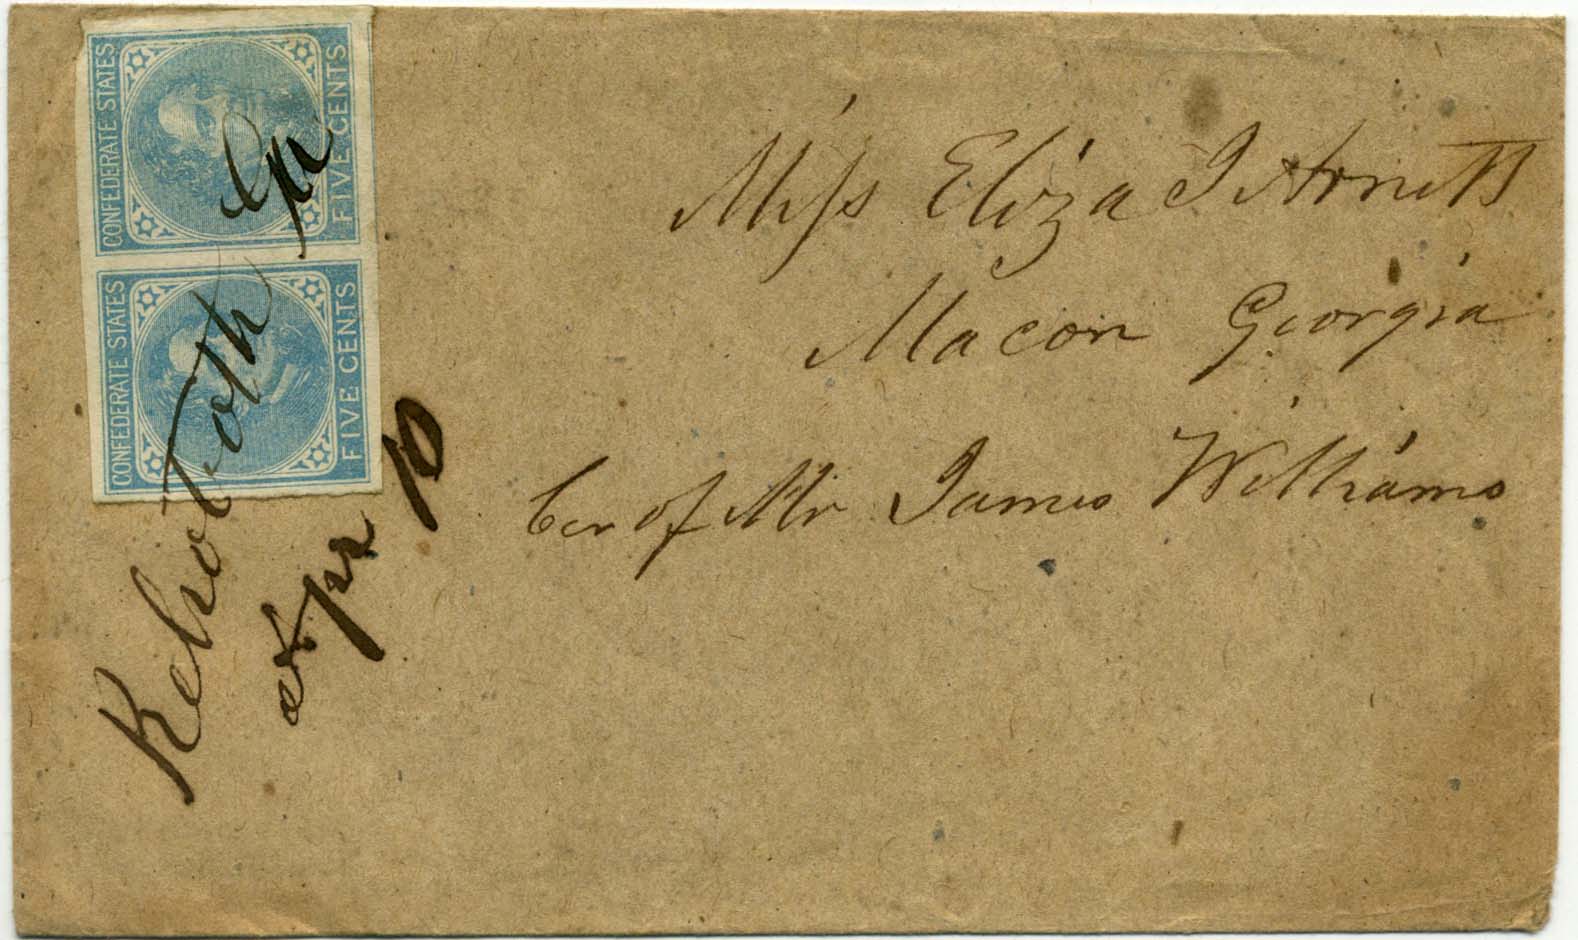 CONFEDERATE STATES
FIVE CENTS
CONFEDERATE STATES
FIVE CENTS
Rehoboth Ga
Apr 10
Miss Eliza J Arnett
Macon Georgia
Car of Mr James Williams